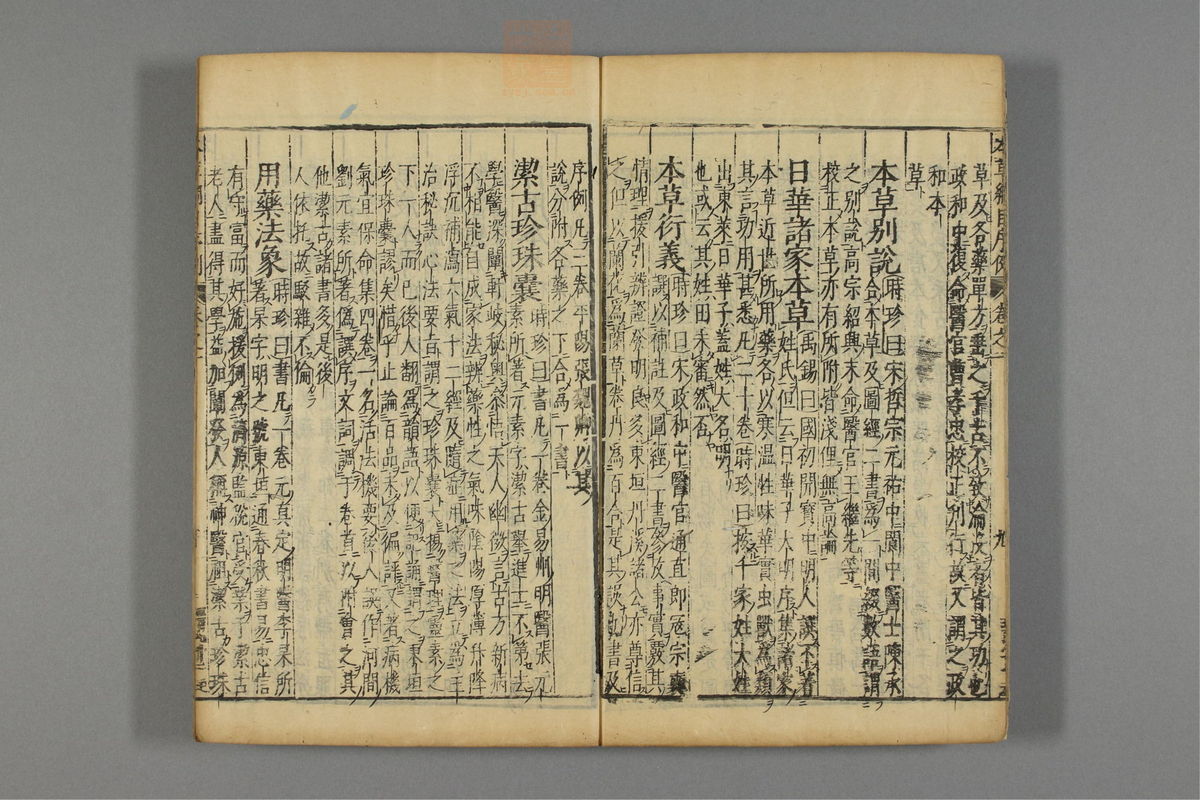 草及各藥單方壘之千古不致淪没者皆其功也
政和中復命醫官曹孝忠校正刋行故又謂之政
和本
草
本草別說時珍曰宋哲宗元祐中閬中醫士陳承
合本草及圖經二書爲一間綴數語謂
之別說高宗紹興末命醫官王繼先等
校正本草亦有所附皆淺俚無高論
日華諸家本草禹錫曰國初開寶中明人譔不著
姓氏但云日華子大明序集諸家
本草近世所用藥各以寒温性味華實虫獸爲類
其言功用甚悉凡二十卷時珍曰按千家姓大姓
出東萊日華子蓋姓大名明
也或云其姓田未審然否
本草衍義時珍曰宋政和中醫官通直郎寇宗奭
譔以補註及圖經二書參攷事實覈其
情理援引辨證發明良多東垣丹溪諸公亦尊信
之但以蘭花爲蘭草卷丹爲百合是其誤也書及
序例凡三卷平陽張魏卿以其
說分附各藥之下合爲一書
潔古珍珠囊時珍曰書凡一卷金易州明醫張元
素所著元素字潔古舉進士不第去
學醫深闡軒岐秘奥參悟天人幽微言古方新病
不相能自成家法辨藥性之氣味陰陽厚薄升降
浮沉補瀉六氣十二經及隨證用藥之法立爲主
治秘訣心法要旨謂之珍珠囊大揚醫理靈素之
下一人而已後人翻爲韻語以便記誦謂之東垣
珍珠囊謬矣惜乎止論百品未及徧評又著病機
氣宜保命集四卷一名活法機要後人誤作河間
劉元素所著僞譔序文詞調于卷首以附會之其
他潔古諸書多是後
人依托故駁雜不倫
用藥法象時珍曰書凡一卷元真定明醫李杲所
著杲字明之號東垣通春秋書易忠信
有守富而好施援例爲濟源監稅官受業于潔古
老人盡得其學益加闡發人稱神醫祖潔古珍珠